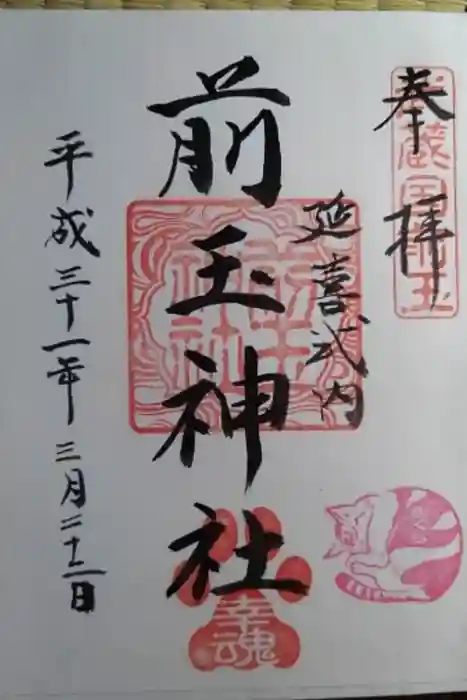 奉拝
武蔵国前玉
延喜式内
前玉神社
前玉神社
幸魂
平成三十一年三月二十二日